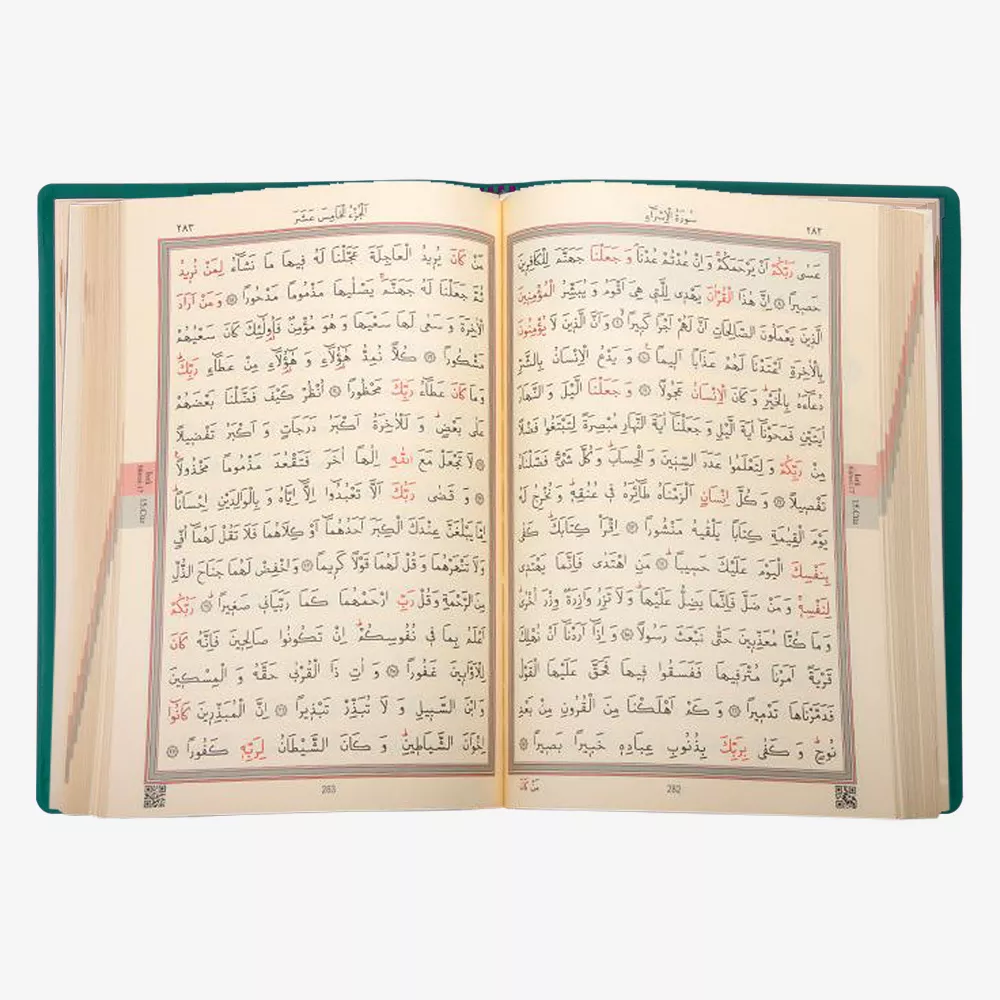 سُورَةُ الْإِسْرَاءِ
٢٨٢
عَسٰى رَبُّكُمْ اَنْ يَرْحَمَكُمْ وَاِنْ عُدْتُمْ عُدْنَا وَجَعَلْنَا جَهَنَّمَ لِلْكَافِرِينَ
حَصِيرًا ۝ اِنَّ هٰذَا الْقُرْاٰنَ يَهْدِى لِلَّتِى هِىَ اَقْوَمُ وَيُبَشِّرُ الْمُؤْمِنِينَ
الَّذِينَ يَعْمَلُونَ الصَّالِحَاتِ اَنَّ لَهُمْ اَجْرًا كَبِيرًا ۝ وَاَنَّ الَّذِينَ لَا يُؤْمِنُونَ
بِالْاٰخِرَةِ اَعْتَدْنَا لَهُمْ عَذَابًا اَلِيمًا ۝ وَ يَدْعُ الْاِنْسَانُ بِالشَّرِّ
دُعَاءَهُ بِالْخَيْرِ وَكَانَ الْاِنْسَانُ عَجُولًا ۝ وَجَعَلْنَا الَّيْلَ وَالنَّهَارَ
اٰيَتَيْنِ فَمَحَوْنَا اٰيَةَ الَّيْلِ وَجَعَلْنَا اٰيَةَ النَّهَارِ مُبْصِرَةً لِتَبْتَغُوا فَضْلًا
مِنْ رَبِّكُمْ وَ لِتَعْلَمُوا عَدَدَ السِّنِينَ وَالْحِسَابَ وَكُلَّ شَىْءٍ فَصَّلْنَاهُ
تَفْصِيلًا ۝ وَ كُلَّ اِنْسَانٍ اَلْزَمْنَاهُ طَائِرَهُ فِى عُنُقِهِ وَ نُخْرِجُ لَهُ
يَوْمَ الْقِيٰمَةِ كِتَابًا يَلْقٰيهُ مَنْشُورًا ۝ اِقْرَأْ كِتَابَكَ كَفٰى
بِنَفْسِكَ الْيَوْمَ عَلَيْكَ حَسِيبًا ۝ مَنِ اهْتَدٰى فَاِنَّمَا يَهْتَدِى
لِنَفْسِهِ وَ مَنْ ضَلَّ فَاِنَّمَا يَضِلُّ عَلَيْهَا وَلَا تَزِرُ وَازِرَةٌ وِزْرَ اُخْرٰى
وَ مَا كُنَّا مُعَذِّبِينَ حَتّٰى نَبْعَثَ رَسُولًا ۝ وَ اِذَا اَرَدْنَا اَنْ نُهْلِكَ
قَرْيَةً اَمَرْنَا مُتْرَفِيهَا فَفَسَقُوا فِيهَا فَحَقَّ عَلَيْهَا الْقَوْلُ
فَدَمَّرْنَاهَا تَدْمِيرًا ۝ وَ كَمْ اَهْلَكْنَا مِنَ الْقُرُونِ مِنْ بَعْدِ
نُوحٍ وَ كَفٰى بِرَبِّكَ بِذُنُوبِ عِبَادِهِ خَبِيرًا بَصِيرًا ۝
مَنْ كَانَ
282
15.Cüz
اَلْجُزْءُ الْخَامِسَ عَشَرَ
٢٨٣
مَنْ كَانَ يُرِيدُ الْعَاجِلَةَ عَجَّلْنَا لَهُ فِيهَا مَا نَشَاءُ لِمَنْ نُرِيدُ
ثُمَّ جَعَلْنَا لَهُ جَهَنَّمَ يَصْلٰيهَا مَذْمُومًا مَدْحُورًا ۝ وَمَنْ اَرَادَ
الْاٰخِرَةَ وَ سَعٰى لَهَا سَعْيَهَا وَ هُوَ مُؤْمِنٌ فَاُولٰئِكَ كَانَ سَعْيُهُمْ
مَشْكُورًا ۝ كُلًّا نُمِدُّ هٰؤُلَاءِ وَ هٰؤُلَاءِ مِنْ عَطَاءِ رَبِّكَ
وَمَا كَانَ عَطَاءُ رَبِّكَ مَحْظُورًا ۝ اُنْظُرْ كَيْفَ فَضَّلْنَا بَعْضَهُمْ
عَلٰى بَعْضٍ وَ لَلْاٰخِرَةُ اَكْبَرُ دَرَجَاتٍ وَ اَكْبَرُ تَفْضِيلًا
۝ لَا تَجْعَلْ مَعَ اللّٰهِ اِلٰهًا اٰخَرَ فَتَقْعُدَ مَذْمُومًا مَخْذُولًا
۝ وَ قَضٰى رَبُّكَ اَلَّا تَعْبُدُوا اِلَّا اِيَّاهُ وَ بِالْوَالِدَيْنِ اِحْسَانًا
اِمَّا يَبْلُغَنَّ عِنْدَكَ الْكِبَرَ اَحَدُهُمَا اَوْ كِلَاهُمَا فَلَا تَقُلْ لَهُمَا اُفٍّ
وَلَا تَنْهَرْهُمَا وَ قُلْ لَهُمَا قَوْلًا كَرِيمًا ۝ وَاخْفِضْ لَهُمَا جَنَاحَ الذُّلِّ
مِنَ الرَّحْمَةِ وَقُلْ رَبِّ ارْحَمْهُمَا كَمَا رَبَّيَانِى صَغِيرًا ۝ رَبُّكُمْ
اَعْلَمُ بِمَا فِى نُفُوسِكُمْ اِنْ تَكُونُوا صَالِحِينَ فَاِنَّهُ كَانَ
لِلْاَوَّابِينَ غَفُورًا ۝ وَ اٰتِ ذَا الْقُرْبٰى حَقَّهُ وَ الْمِسْكِينَ
وَابْنَ السَّبِيلِ وَ لَا تُبَذِّرْ تَبْذِيرًا ۝ اِنَّ الْمُبَذِّرِينَ كَانُوا
اِخْوَانَ الشَّيَاطِينِ وَ كَانَ الشَّيْطَانُ لِرَبِّهِ كَفُورًا ۝
283
15.Cüz